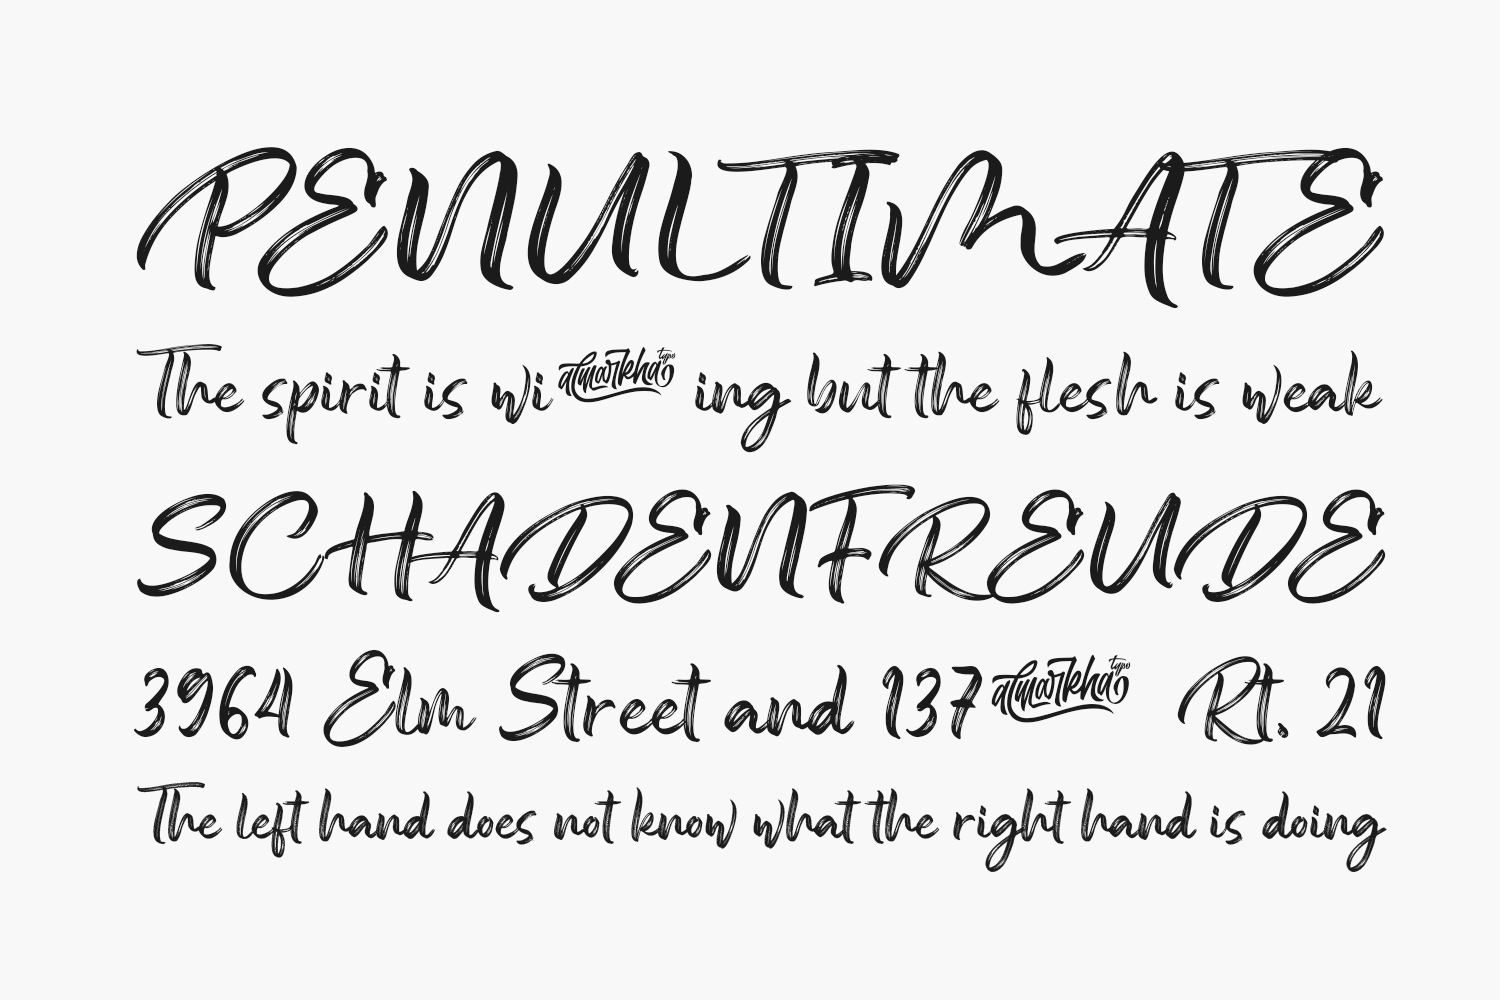 PENULTIMATE
The spirit is wi almarkha typo ing but the flesh is weak
SCHADENFREUDE
3964 Elm Street and 137 almarkha typo Rt. 21
The left hand does not know what the right hand is doing